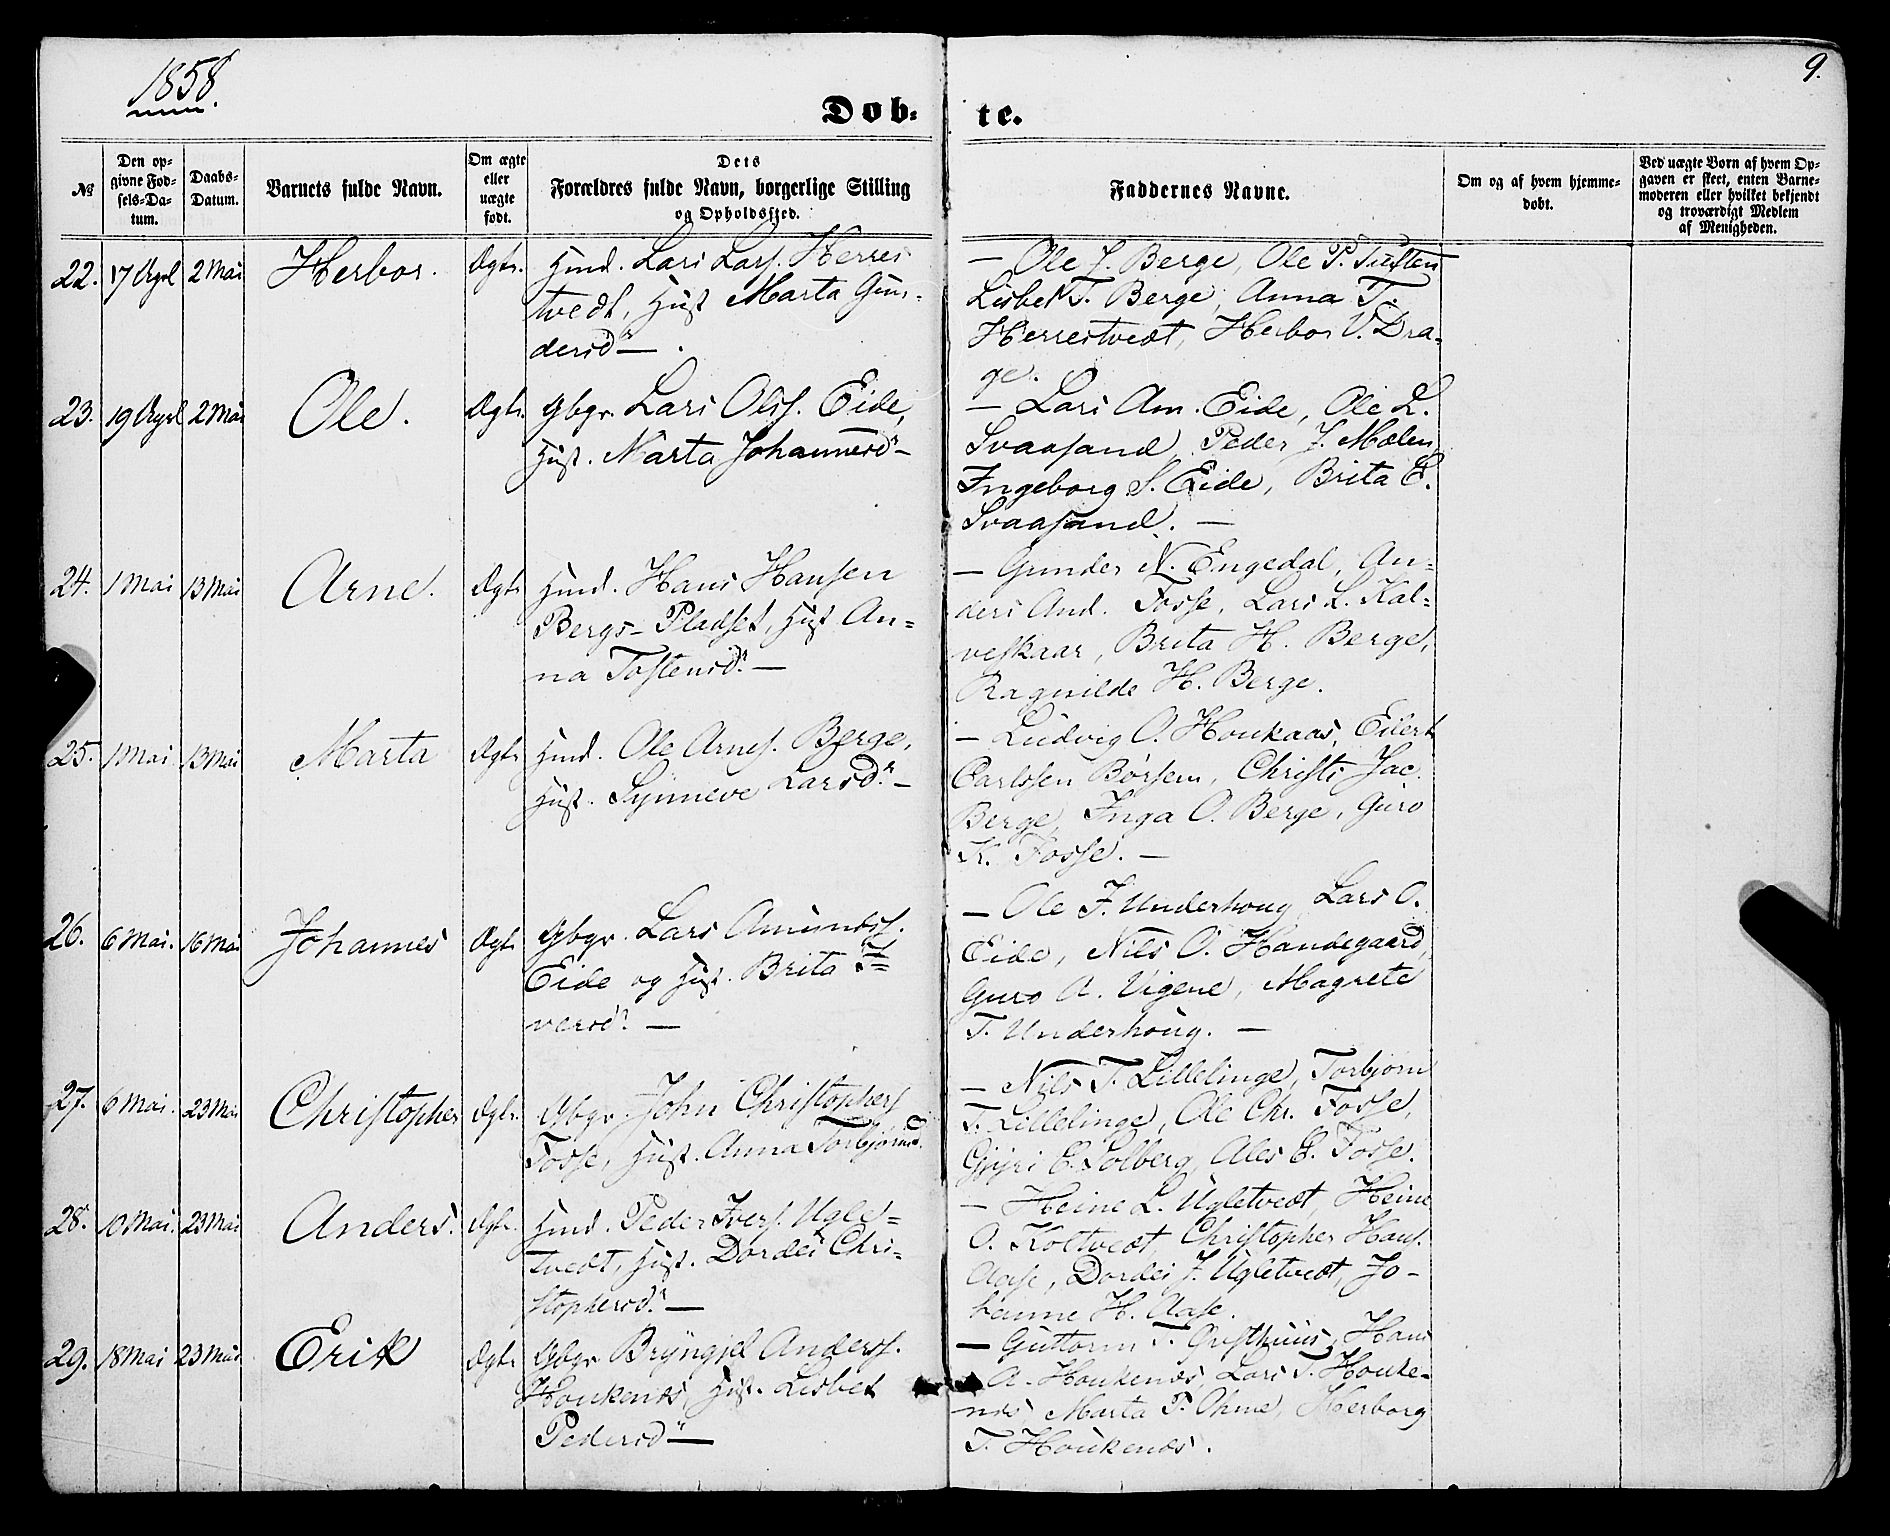 1858.
9.
Døb- te.
№
Den op-
givne Fød-
sels-Da-
tum.
Daabs-
Datum.
Barnets fulde Navn.
Om ægte
eller
uægte
født.
Dets
Forældres fulde Navn, borgerlige Stilling
og Opholdssted.
Faddernes Navne.
Om og af hvem hjemme-
døbt.
Ved uægte Børn af hvem Op-
gaven er skeet, enten Barne-
moderen eller hvilket bekjendt
og troværdigt Medlem
af Menigheden.
22. 17 April 2 Mai Herbor. Ægte. Hmd. Lars Lars. Herres
tvedt, Hust Marta Gun-
dersdr — .
— Ole J. Berge, Ole P. Tuften
Lisbet T. Berge, Anna T.
Herrestvedt, Herbor V. Dra-
ge.
23. 19 April 2 Mai Ole. Ægte. Gbgr. Lars Ols. Eide,
Hust. Marta Johannesdr —
— Lars Am. Eide, Ole L.
Svaasand, Peder J. Mælen
Ingeborg S. Eide, Brita E.
Svaasand. —
24. 1 Mai 13 Mai Arne. Ægte Hmd. Hans Hansen
Bergs-Pladset, Hust An-
na Tostensdr. —
— Gunder N. Engedal, An-
ders And. Fosse, Lars L. Kal-
veskaar, Brita H. Berge,
Ragnilde H. Berge.
25. 1 Mai 13 Mai Marta Ægte Hmd. Ole Arnes. Berge,
Hust. Synneve Larsdr. —
— Ludvig O. Houkaas, Eilert
Carlssen Børsem, Christi Jac.
Berge, Inga O. Berge, Guro
K. Fosse. —
26. 6 Mai. 16 Mai Johannes Ægte Gbgr. Lars Amunds.
Eide og Hust. Brita I-
versdr. —
— Ole J. Underhoug, Lars O.
Eide, Nils O. Handegaard,
Guro A. Vigene, Magrete
T. Underhoug. —
27. 6 Mai. 23 Mai Christopher Ægte. Gbgr. John Christophers
Fosse, Hust. Anna Torbjørnsd.
— Nils T. Lillelinge, Torbjørn
T. Lillelinge, Ole Chr. Fosse,
Gjyri E. Solberg, Ales E. Fosse.
28. 10 Mai. 23 Mai Anders. Ægte. Hmd. Peder Ivers. Ugle-
tvedt, Hust. Dordei Chri-
stophersdr. —
— Heine L. Ugletvedt, Heine
O. Koltvedt, Christopher Hans.
Aase, Dordei J. Ugletvedt, Jo-
hanne H. Aase.
29. 18 Mai 23 Mai Erik Ægte Gbgr Bryngjel Anders.
Houkenæs, Hust. Lisbet
Pedersdr —
— Guttorm T. Hans
A. Houkenæs, Lars T. Houke-
næs, Marta P. Ohme, Herborg
T. Houkenæs.